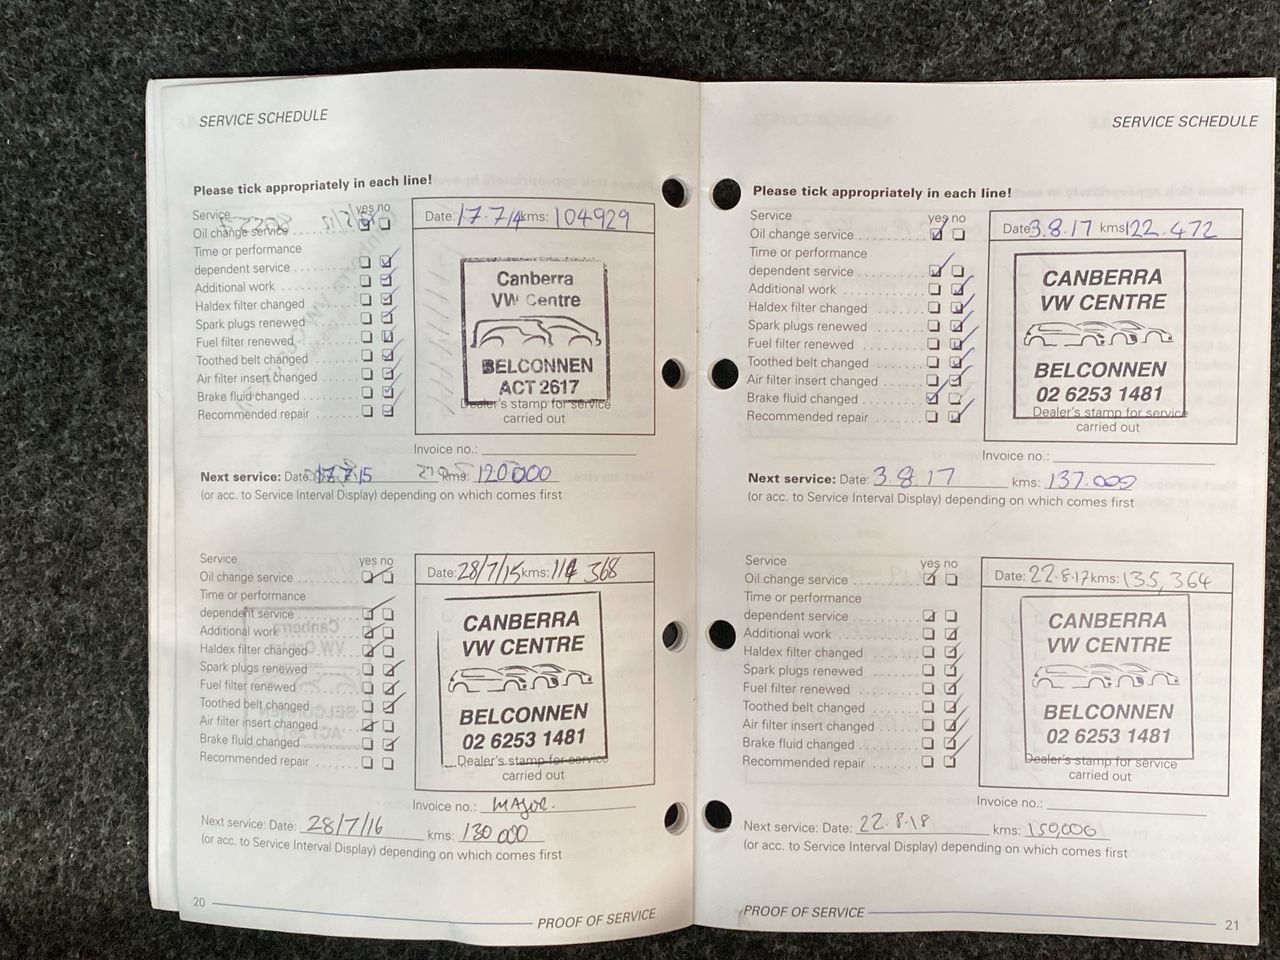 SERVICE SCHEDULE
Please tick appropriately in each line!
Service
yes no
Oil change service
Time or performance
dependent service
Additional work
Haldex filter changed
Spark plugs renewed
Fuel filter renewed
Toothed belt changed
Air filter insert changed
Brake fluid changed
Recommended repair
Date: 17.7/4 kms: 104929
Canberra
VW Centre
BELCONNEN
ACT 2617
Dealer's stamp for service
carried out
Invoice no.:
Next service: Date: 17.7.15 kms: 120000
(or acc. to Service Interval Display) depending on which comes first
Service
yes no
Oil change service
Time or performance
dependent service
Additional work
Haldex filter changed
Spark plugs renewed
Fuel filter renewed
Toothed belt changed
Air filter insert changed
Brake fluid changed
Recommended repair
Date: 28/7/15 kms: 114 368
CANBERRA
VW CENTRE
BELCONNEN
02 6253 1481
Dealer's stamp for service
carried out
Invoice no.: MAJOR.
Next service: Date: 28/7/16 kms: 130 000
(or acc. to Service Interval Display) depending on which comes first
20
PROOF OF SERVICE
SERVICE SCHEDULE
Please tick appropriately in each line!
Service
yes no
Oil change service
Time or performance
dependent service
Additional work
Haldex filter changed
Spark plugs renewed
Fuel filter renewed
Toothed belt changed
Air filter insert changed
Brake fluid changed
Recommended repair
Date 3.8.17 kms 122.472
CANBERRA
VW CENTRE
BELCONNEN
02 6253 1481
Dealer's stamp for service
carried out
Invoice no.:
Next service: Date: 3.8.17 kms: 137.000
(or acc. to Service Interval Display) depending on which comes first
Service
yes no
Oil change service
Time or performance
dependent service
Additional work
Haldex filter changed
Spark plugs renewed
Fuel filter renewed
Toothed belt changed
Air filter insert changed
Brake fluid changed
Recommended repair
Date: 22.8.17 kms: 135,364
CANBERRA
VW CENTRE
BELCONNEN
02 6253 1481
Dealer's stamp for service
carried out
Invoice no.:
Next service: Date: 22.8.18 kms: 150,000
(or acc. to Service Interval Display) depending on which comes first
PROOF OF SERVICE
21